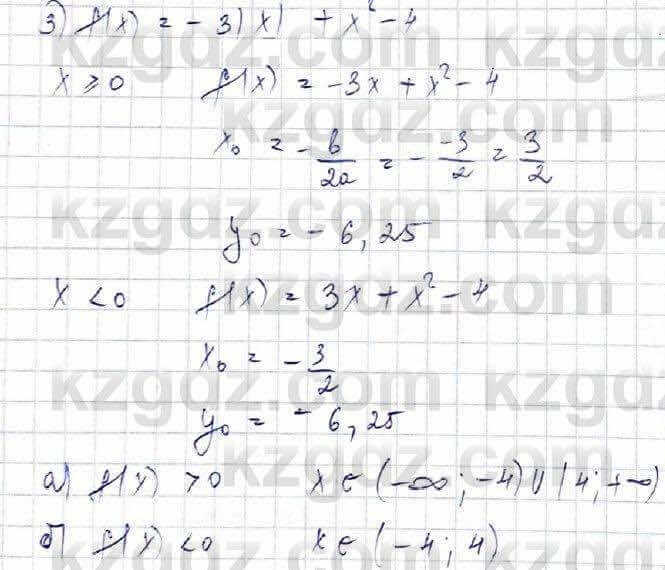 3) f(x) = -3|x| + x² - 4
x ≥ 0 f(x) = -3x + x² - 4
x₀ = -b/2a = - -3/2 = 3/2
y₀ = -6,25
x < 0 f(x) = 3x + x² - 4
x₀ = -3/2
y₀ = -6,25
а) f(x) > 0 x ∈ (-∞; -4) ∪ (4; +∞)
б) f(x) < 0 x ∈ (-4; 4)
kzgdz.com